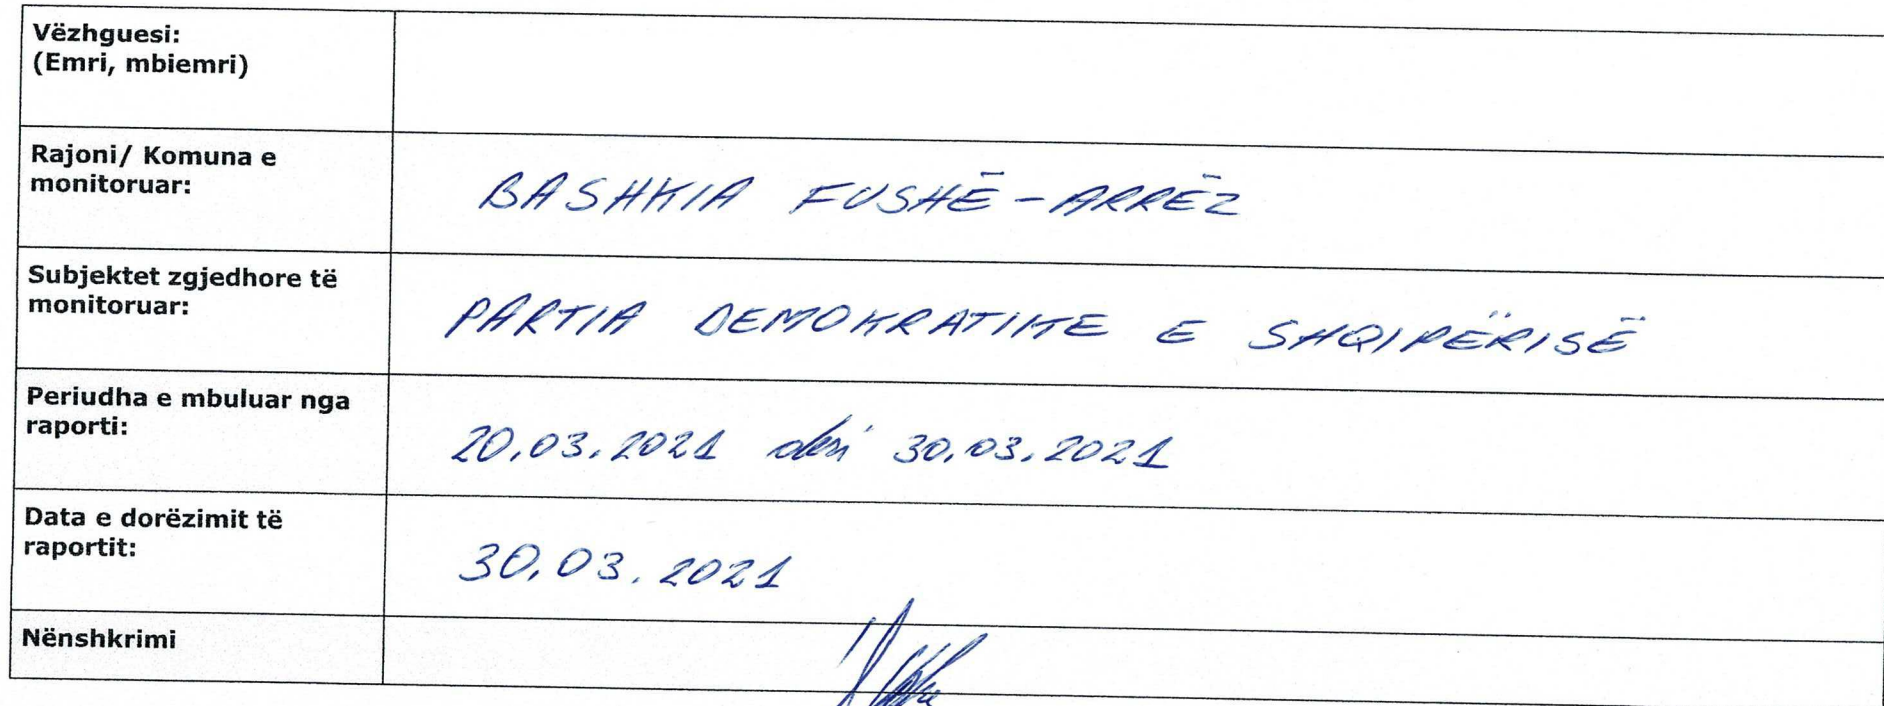 Vëzhguesi:
(Emri, mbiemri)
Rajoni/ Komuna e
monitoruar:
BASHKIA FUSHË-ARRËZ
Subjektet zgjedhore të
monitoruar:
PARTIA DEMOKRATIKE E SHQIPËRISË
Periudha e mbuluar nga
raporti:
20.03.2021 deri 30.03.2021
Data e dorëzimit të
raportit:
30.03.2021
Nënshkrimi